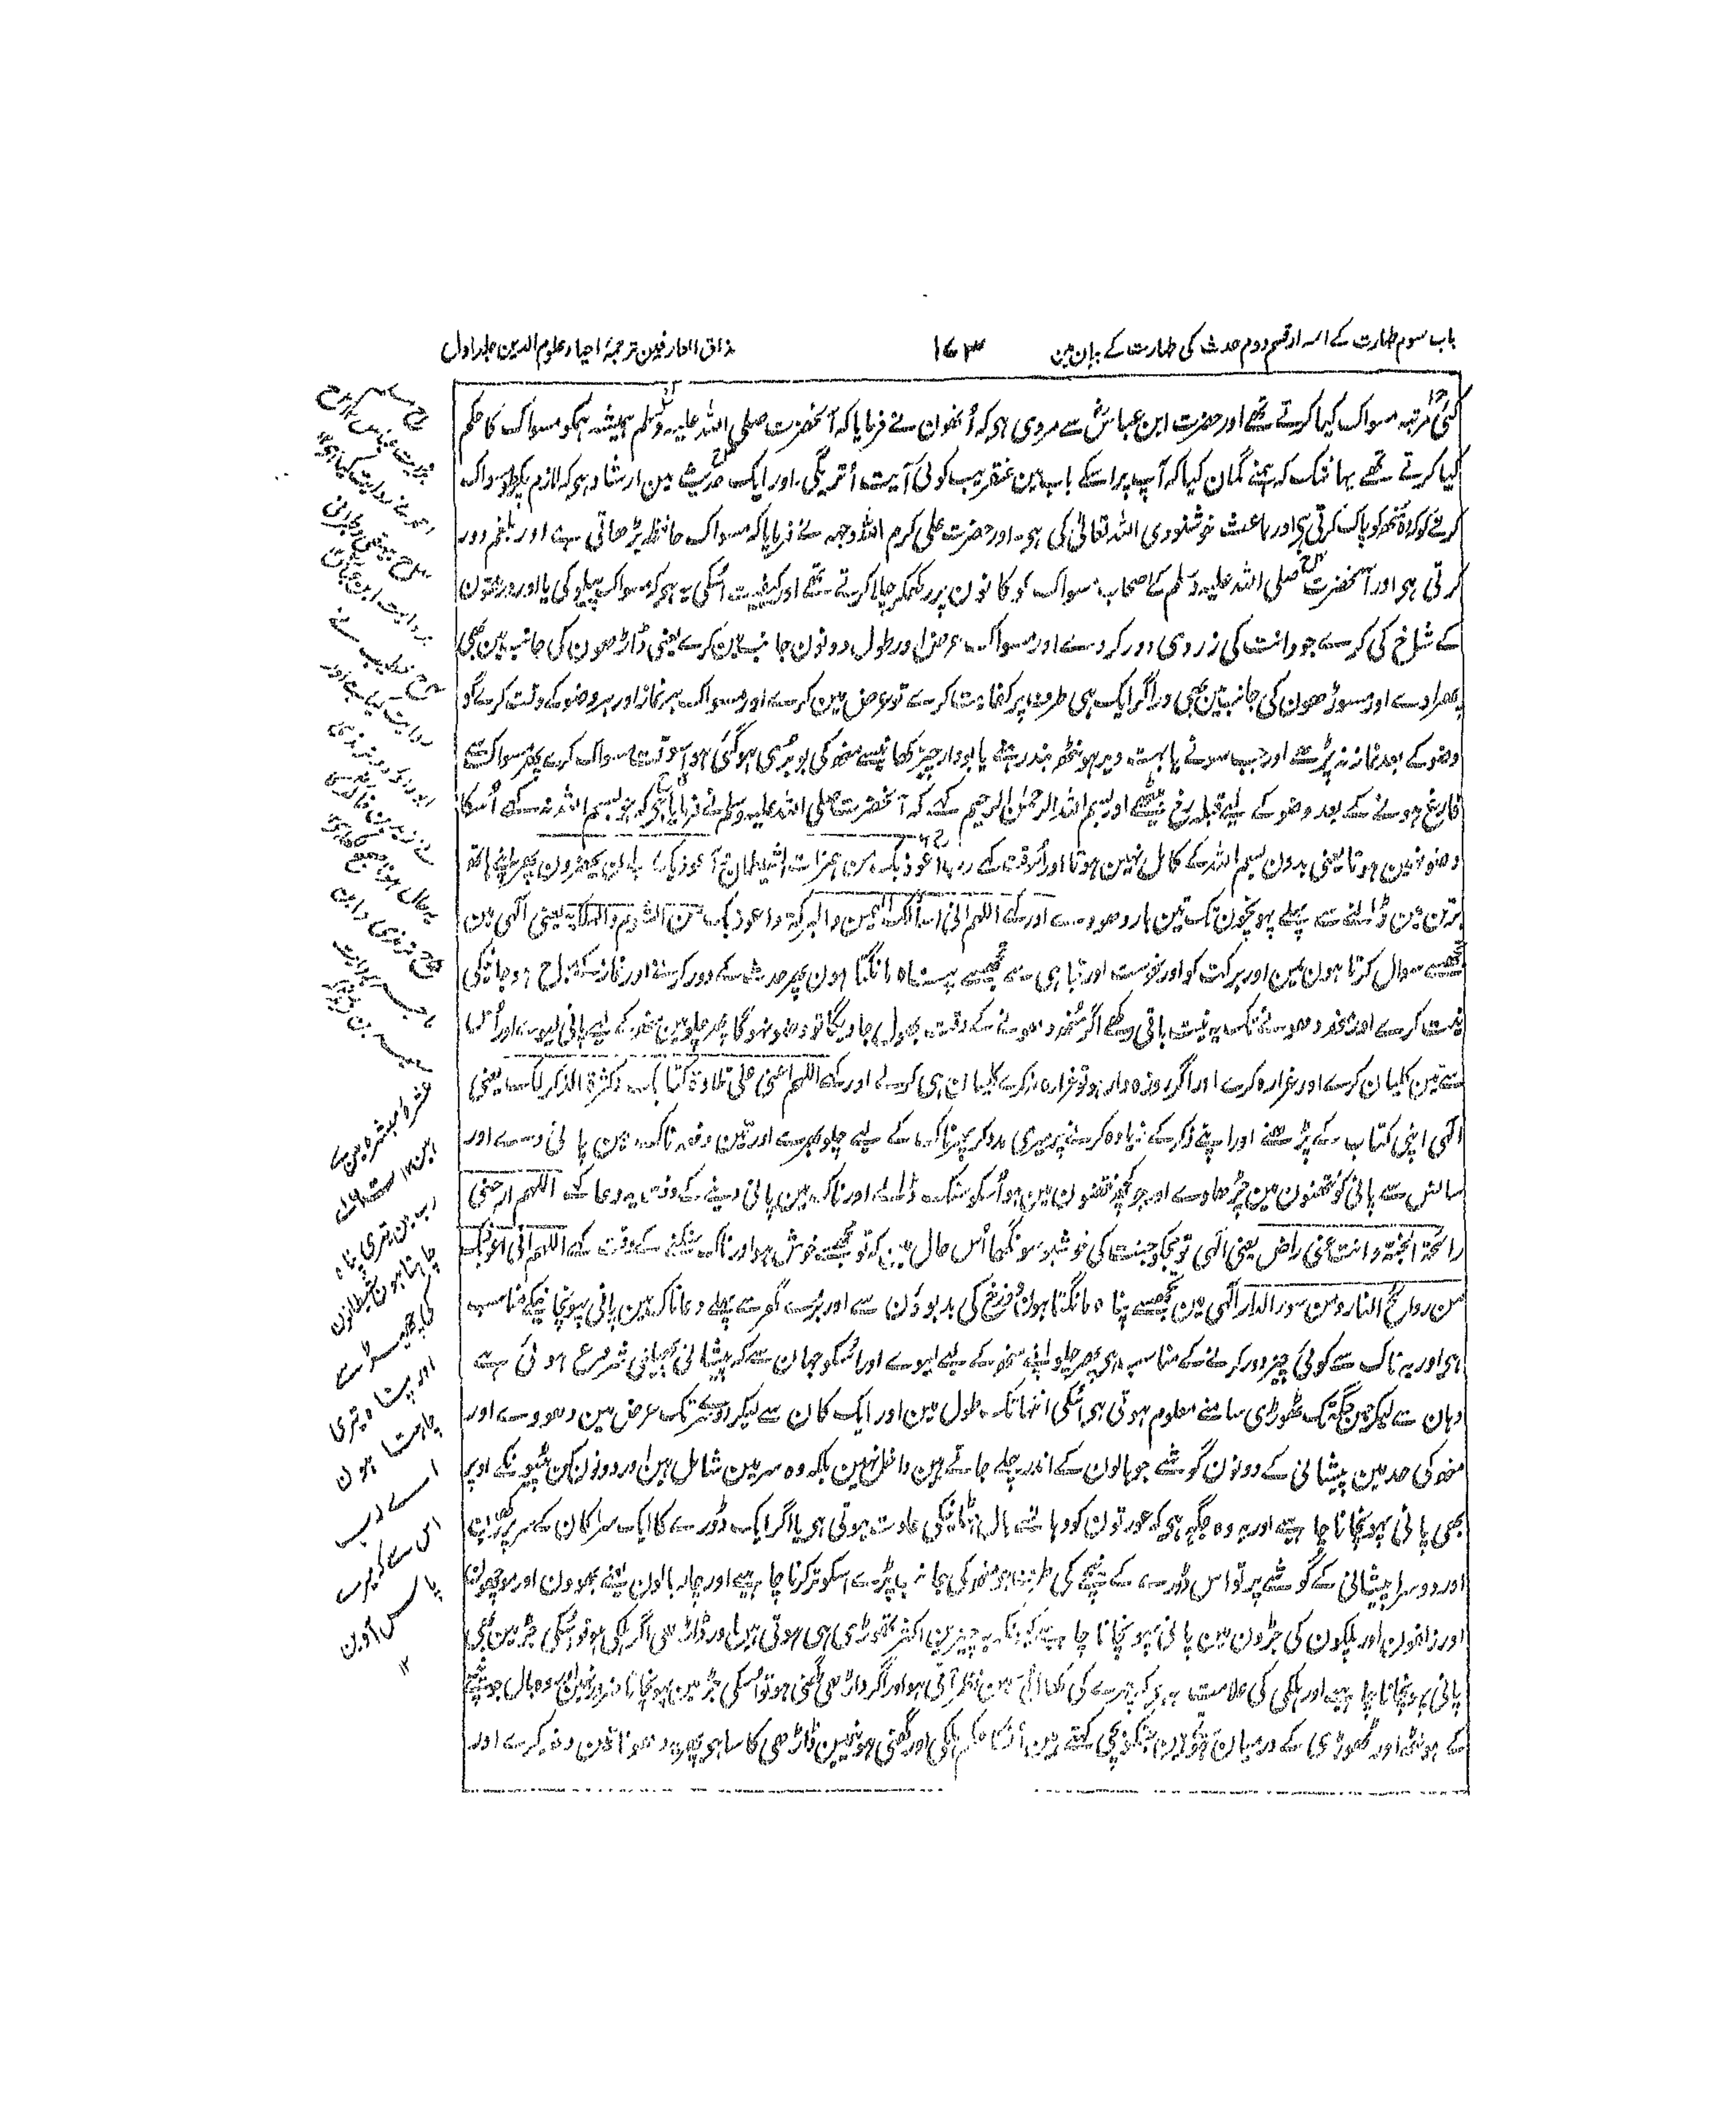 باب سوم طہارت کے اسرار قسم دوم حدث کی طہارت کے بیان مین
۱۶۳
مذاق العارفین ترجمۂ احیاء علوم الدین جلد اول
کئی مرتبہ مسواک کیا کرتے تھے اور حضرت ابن عباسؓ سے مروی ہو کہ اُنھون نے فرمایا کہ آنحضرت صلی اللہ علیہ وسلم ہمیشہ ہمکو مسواک کا حکم
کیا کرتے تھے یہانتک کہ ہمنے گمان کیا کہ آپ پر اسکے باب مین عنقریب کوئی آیت اُتریگی اور ایک حدیث مین ارشاد ہو کہ لازم پکڑو مسواک
کرنے کو کہ وہ منھ کو پاک کرتی ہو اور باعث خوشنودی اللہ تعالیٰ کی ہو۔ اور حضرت علی کرم اللہ وجہہ نے فرمایا کہ مسواک حافظہ بڑھاتی ہے اور بلغم دور
کرتی ہو اور آنحضرت صلی اللہ علیہ وسلم کے اصحاب مسواک کو کانون پر رکھکر چلا کرتے تھے اور کیفیت اُسکی یہ ہو کہ مسواک پیلو کی یا اور درختون
کے شاخ کی کرے جو دانت کی زردی دور کردے اور مسواک عرض اور طول دونون جانب مین کرے یعنی ڈاڑھون کی جانب مین بھی
پھراوے اور مسوڑھون کی جانب مین بھی اور اگر ایک ہی طرف پر کفایت کرے تو عرض مین کرے اور مسواک ہر نماز اور ہر وضو کے وقت کرے گو
وضو کے بعد نماز نہ پڑھے اور جب سونے یا بہت دیر ہونٹھ بند رہنے یا بودار چیز کھانیسے منھ کی بو بُری ہو گئی ہو اُسوقت مسواک کرے پھر مسواک سے
فارغ ہونے کے بعد وضو کے لیے قبلہ رخ بیٹھے اور بسم اللہ الرحمٰن الرحیم کہے کہ آنحضرت صلی اللہ علیہ وسلم نے فرمایا ہو کہ جو بسم اللہ نہ کہے اُسکا
وضو نہین ہوتا یعنی بدون بسم اللہ کے کامل نہین ہوتا اور اُسوقت کہے رب اعوذ بک من ہمزات الشیاطین و اعوذ بک رب ان یحضرون پھر اپنے ہاتھ
برتن مین ڈالنے سے پہلے پہونچون تک تین بار دھووے اور کہے اللہم انی اسألک الیمن والبرکۃ واعوذ بک من الشؤم والہلکۃ یعنی الٰہی مین
تجھسے سوال کرتا ہون یمن اور برکت کو اور نحوست اور تباہی سے تجھسے پناہ مانگتا ہون پھر حدث کے دور کرنے اور نماز کے مباح ہوجانیکی
نیت کرے اور منھ دھونے تک یہ نیت باقی رکھے اگر منھ دھونے کے وقت بھول جاویگا تو وضو نہوگا پھر چلو مین منھ کے لیے پانی لیوے اور اُس
سے تین کلیان کرے اور غرارہ کرے اور اگر روزہ دار ہو تو غرارہ نہ کرے کلیان ہی کرلے اور کہے اللہم اعنی علی تلاوۃ کتابک وکثرۃ الذکر لک یعنی
الٰہی اپنی کتاب کے پڑھنے اور اپنے ذکر کے زیادہ کرنے پر میری مدد کر پھر ناک کے لیے چلو بھرے اور تین دفعہ ناک مین پانی دے اور
سانس سے پانی کو نتھنون مین چڑھاوے اور جو کچھ نتھنون مین ہو اُسکو سنک ڈالے اور ناک مین پانی دینے کے وقت یہ دعا کہے اللہم ارحنی
رائحۃ الجنۃ وانت عنی راض یعنی الٰہی تو مجکو جنت کی خوشبو سونگھا اُس حال مین کہ تو مجھسے خوش ہو اور ناک سنکنے کے وقت کہے اللہم انی اعوذ بک
من روائح النار ومن سوء الدار الٰہی مین تجھسے پناہ مانگتا ہون دوزخ کی بدبوؤن سے اور بُرے گھر سے پہلے دعا ناک مین پانی پہونچانیکے مناسب
ہو اور یہ ناک سے کوئی چیز دور کرنے کے مناسب ہو پھر چلو اپنے منھ کے لیے لیوے اور اُسکو جہان سے کہ پیشانی پھیلنی شروع ہوئی ہے
وہان سے لیکر جس جگہ تک ٹھوڑی سامنے معلوم ہوتی ہو اُسکی انتہا تک طول مین اور ایک کان سے لیکر دوسرے تک عرض مین دھووے اور
منھ کی حد مین پیشانی کے دونون گوشے جو بالون کے اندر چلے جاتے ہین داخل نہین بلکہ وہ سر مین شامل ہین اور دونون کن پٹیونکے اوپر
بھی پانی پہونچانا چاہیے اور یہ وہ جگہ ہو کہ عورتون کو وہانسے بال ہٹانیکی عادت ہوتی ہو یا اگر ایک ڈورے کا ایک سرا کان کے سر پر رکھین
اور دوسرا پیشانی کے گوشے پر تو اس ڈورے کے نیچے کی طرف جو منھ کی جانب پڑے اسکو تر کرنا چاہیے اور چار بالون یعنے بھوون اور مونچھون
اور زلفون اور پلکون کی جڑون مین پانی پہونچانا چاہیے کیونکہ یہ چیزین اکثر تھوڑی ہی ہوتی ہین اور ڈاڑھی اگر ہلکی ہو تو اُسکی جڑ مین بھی
پانی پہونچانا چاہیے اور ہلکی کی علامت یہ ہو کہ چہرے کی کھال اُس مین نظر آتی ہو اور اگر ڈاڑھی گھنی ہو تو اُسکی جڑ مین پہونچانا ضرور نہین اور وہ بال جو نیچے
کے ہونٹھ اور ٹھوڑی کے درمیان ہوتے ہین جنکو بچی کہتے ہین اُنکا حکم ہلکی اور گھنی ہونے مین ڈاڑھی کا سا ہو پھر یہ دھونا تین دفعہ کرے اور
عشرۂ مبشرہ مین سے
ہین ۱۲
رب مین تیری پناہ
چاہتا ہون شیطانون
کی چھیڑ سے
اور پناہ تیری
چاہتا ہون
اے رب
اس سے کہ میرے
پاس آوین
۱۲